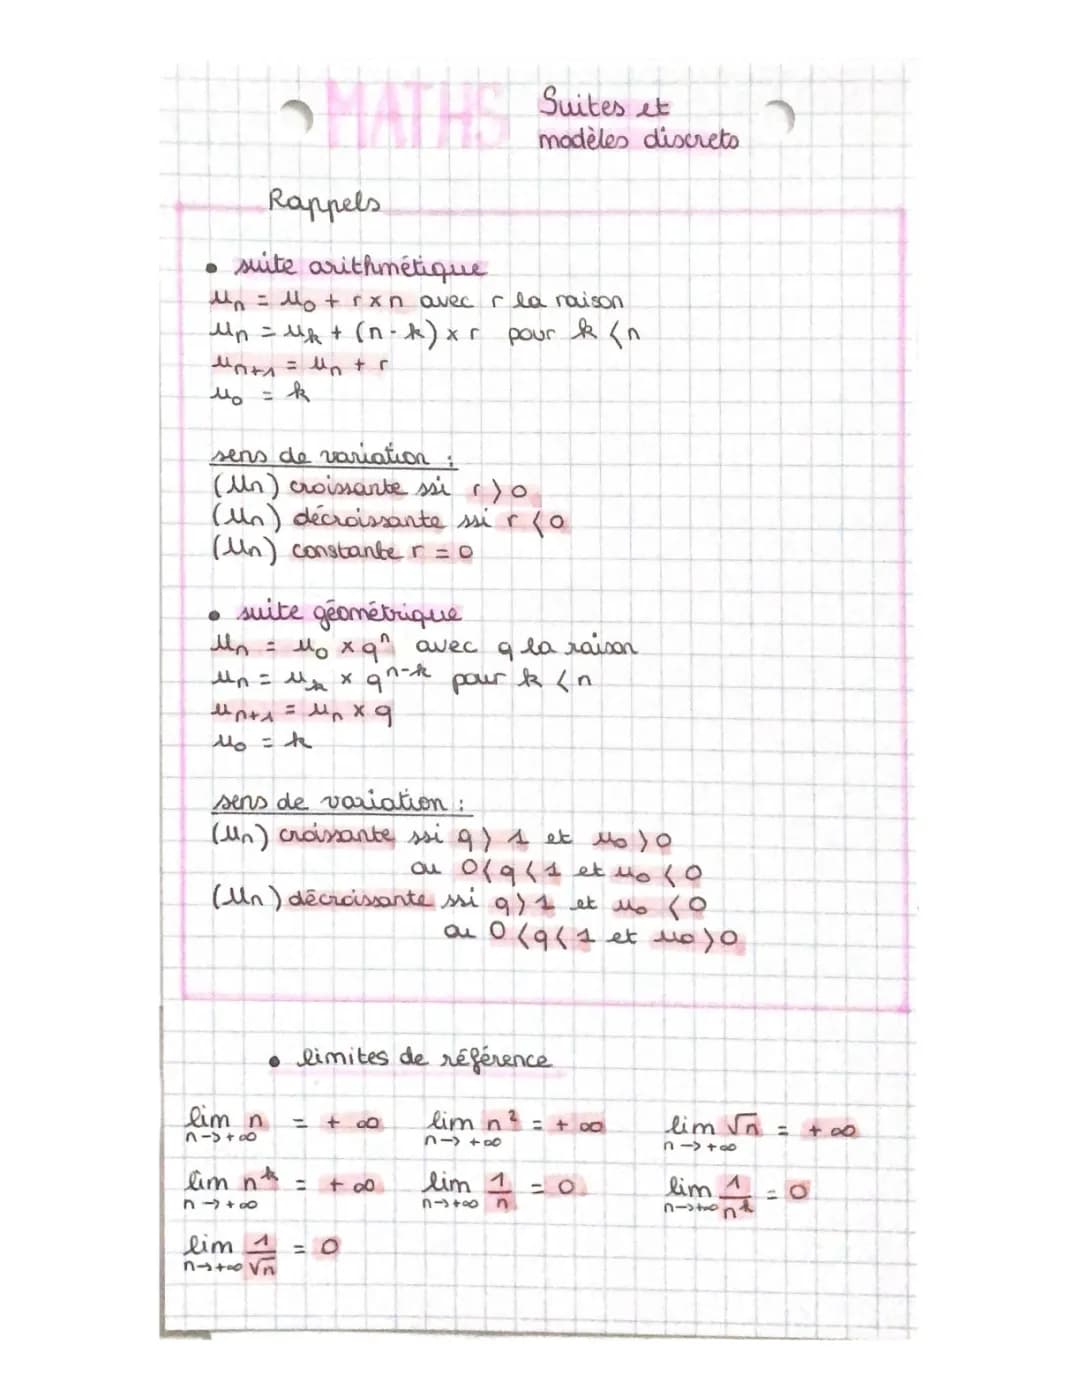 MATHS Suites et
modèles discrets
Rappels
• suite arithmétique
uₙ = u₀ + r × n avec r la raison
uₙ = uₖ + (n - k) × r pour k < n
uₙ₊₁ = uₙ + r
u₀ = k
sens de variation :
(Un) croissante ssi r > 0
(Un) décroissante ssi r < 0
(Un) constante r = 0
• suite géométrique
uₙ = u₀ × qⁿ avec q la raison
uₙ = uₖ × qⁿ⁻ᵏ pour k < n
uₙ₊₁ = uₙ × q
u₀ = k
sens de variation :
(Un) croissante ssi q > 1 et u₀ > 0
ou 0 < q < 1 et u₀ < 0
(Un) décroissante ssi q > 1 et u₀ < 0
ou 0 < q < 1 et u₀ > 0
• limites de référence
lim n→+∞ n = +∞ lim n→+∞ n² = +∞ lim n→+∞ √n = +∞
lim n→+∞ nᵏ = +∞ lim n→+∞ 1/n = 0 lim n→+∞ 1/nᵏ = 0
lim n→+∞ 1/√n = 0